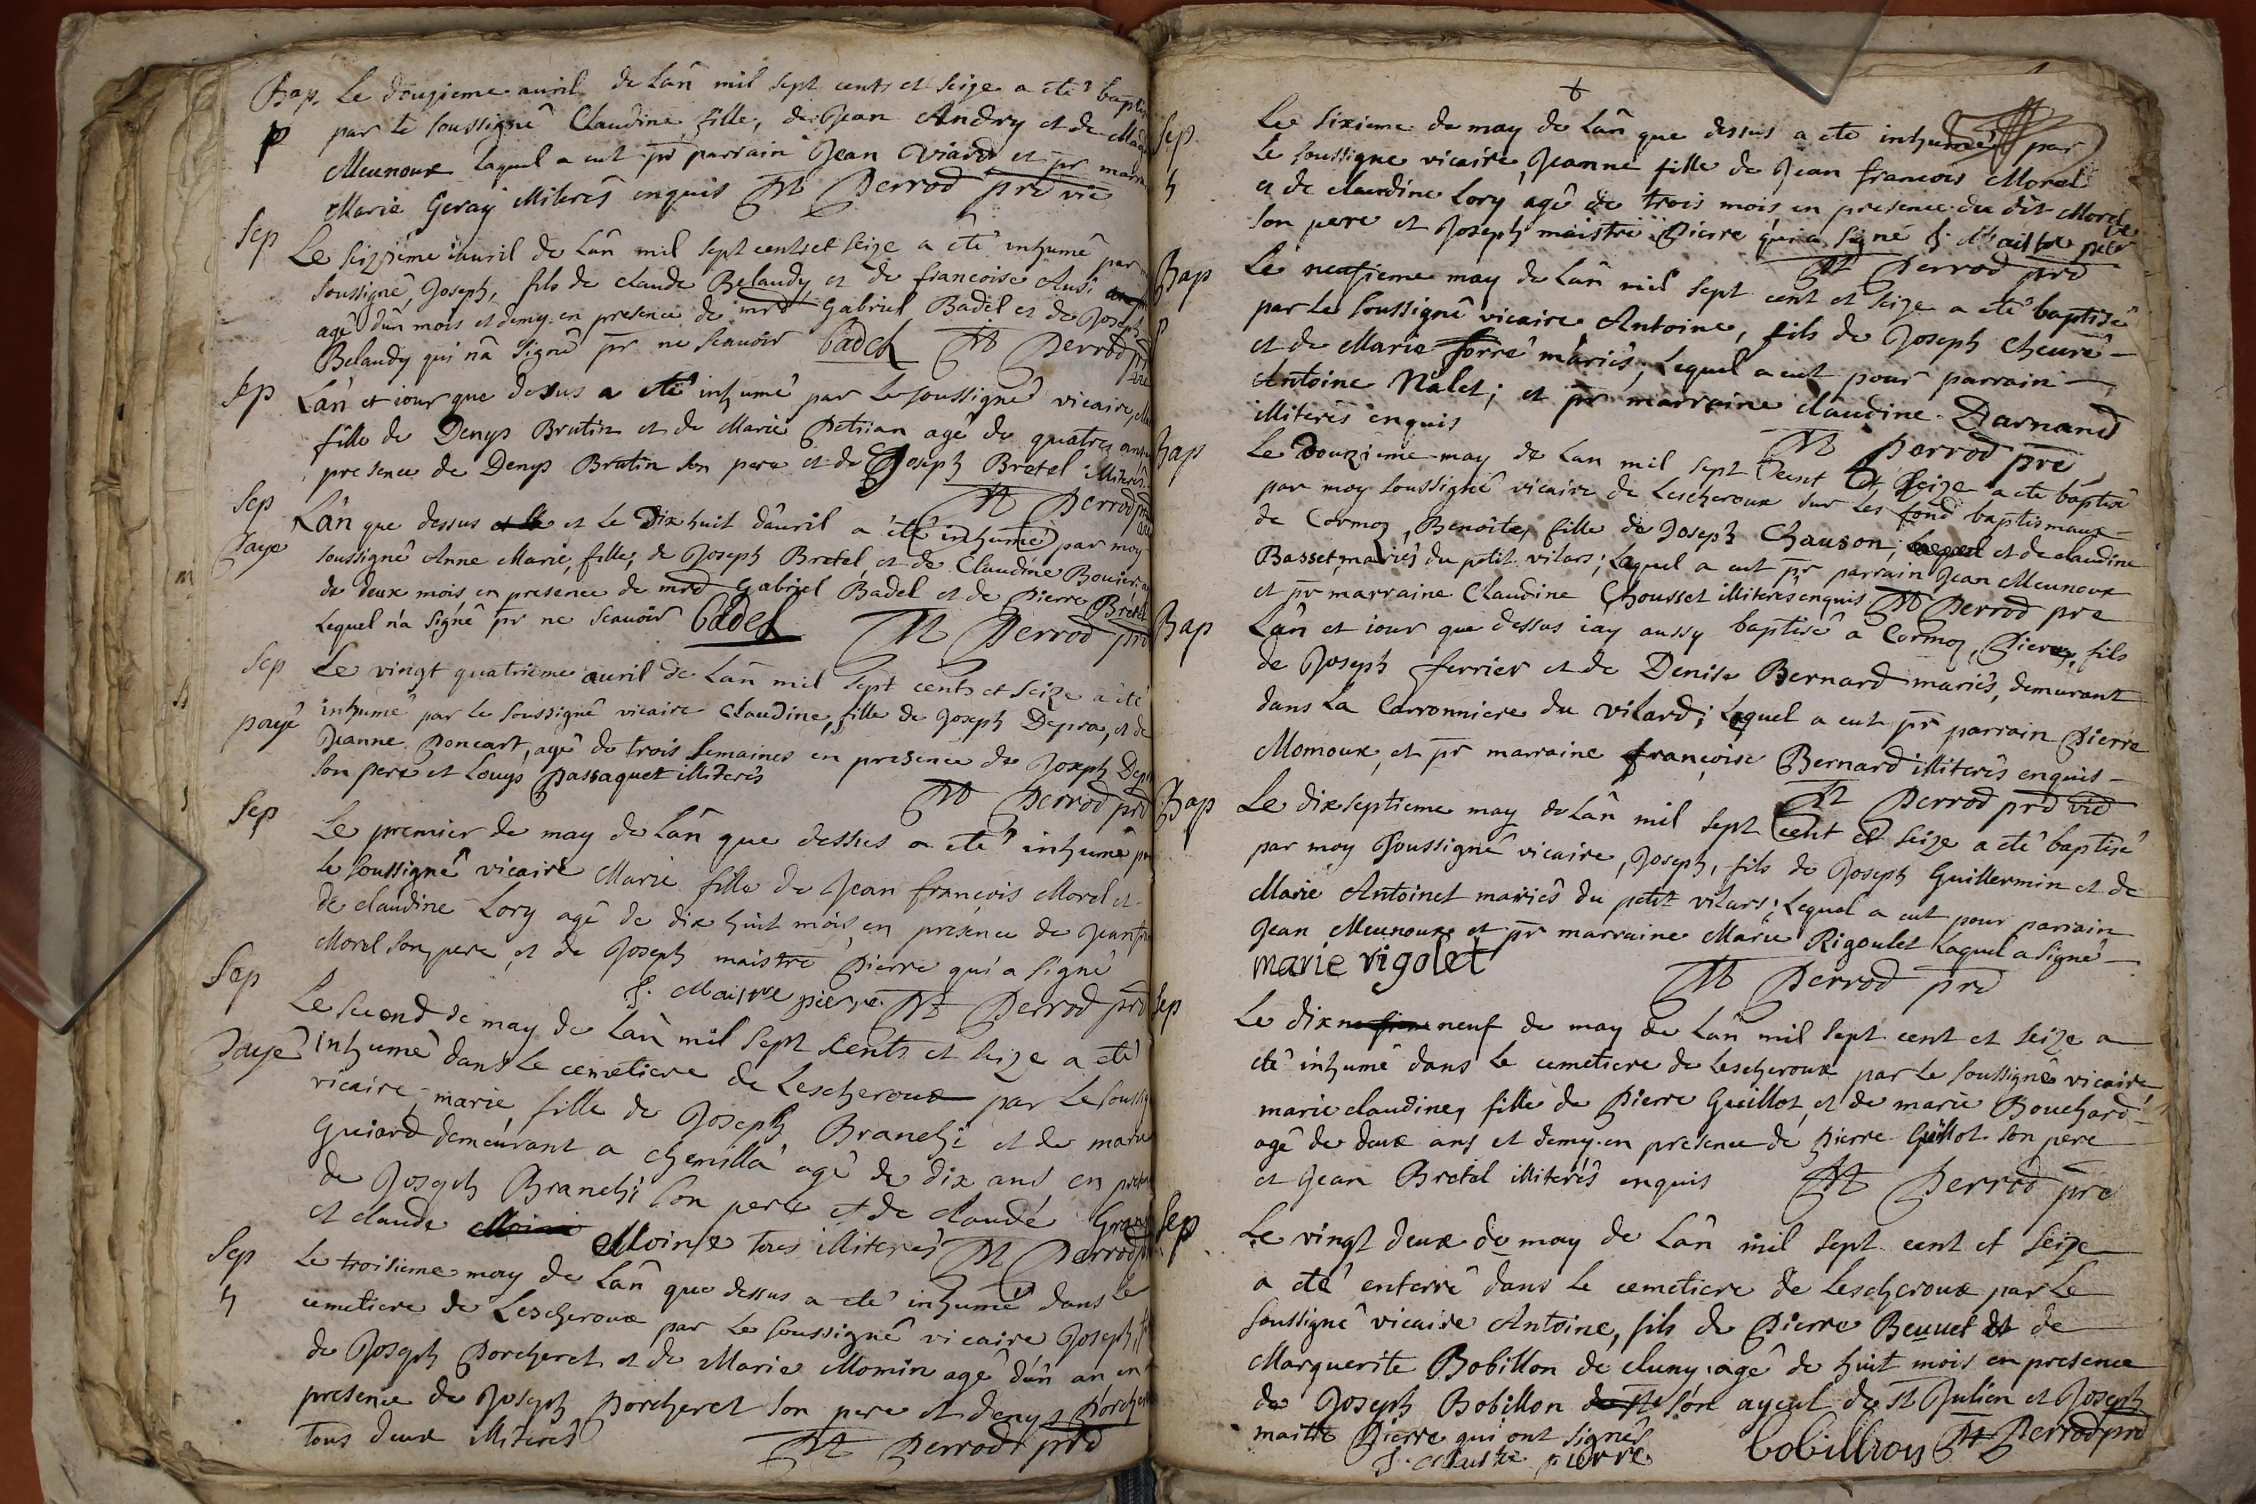 Bap. Le douzieme auril de Lan mil sept cents et seize a eté bapti
par le soussigné Claudine, fille, de Jean Andry et de
Meunoux laquel a eut pr parrain Jean Viard et pr
Marie Geray illiterés enquis Perrod pre vic
Sep Le seizieme auril de Lan mil sept cents et seize a eté inhumé par
soussigné, Joseph, fils de claude Belaudy, et de francoise
agé dun mois et demy en presence de Gabriel Badel et de Joseph
Belaudy qui na signé pr ne scauoir Badel Perrod
Sep Lan et iour que dessus a eté inhumé par Le soussigné vicaire
fille de Denys Brutin et de Marie Petrian agé de quatres
presence de Denys Brutin son pere et de Joseph Bretel
Perrod
Sep Lan que dessus et Le Dix huit dauril a eté inhumé par moy
paye soussigné Anne Marie, fille, de Joseph Bretel et de Claudine Bouier
de deux mois en presence de Gabriel Badel et de Pierre Bretel
Lequel na signé pr ne scauoir Badel Perrod
Sep Le vingt quatrieme auril de Lan mil sept cents et seize a eté
payé inhumé par le soussigné vicaire Claudine, fille de Joseph Depra, et de
Jeanne Poncart, agé de trois semaines en presence de Joseph
son pere et Louys Passaquet illiterés
Perrod
Sep Le premier de may de Lan que dessus a eté inhumé
le soussigné vicaire Marie fille de Jean francois Morel et
de claudine Lory agé de dix huit mois en presence de
Morel son pere, et de Joseph maistre Pierre qui a signé
J. Maistre pierre Perrod
Sep Le second de may de Lan mil sept cents et seize a eté
payé inhumé dans Le cemetiere de Lescheroux par Le
vicaire, marie, fille de Joseph Branchi et de
Guiard demeurant a chemilla agé de dix ans en
de Joseph Branchi son pere et de claude
et claude Moine tous illiterés Perrod
Sep Le troisieme may de Lan que dessus a eté inhumé dans Le
cemetiere de Lescheroux par Le soussigné vicaire Joseph
de Joseph Porcheret et de Marie Momin agé dun an en
presence de Joseph Porcheret son pere et denys
tous deux illiterés
Perrod pre
Sep Le sixieme de may de Lan que dessus a eté inhumé par
Le soussigné vicaire, Jeanne fille de Jean francois Morel
et de claudine Lory agé de trois mois en presence du dit Morel
son pere et Joseph maistre Pierre qui a signé J. Maistre
Perrod pre
Bap Le neufieme may de Lan mil sept cent et seize a eté baptisé
par Le soussigné vicaire Antoine, fils de Joseph cheuré
et de Marie forré mariés, Lequel a eut pour parrain
Antoine Nalet; et pr marraine claudine Darnand
illiterés enquis
Perrod pre
Bap Le Douzieme may de Lan mil sept cent et seize a eté baptisé
par moy soussigné vicaire de Lescheroux sur les fond baptismaux
de Cormoz, Benoite, fille de Joseph Chauson, et de claudine
Basset mariés du petit vilars; Laquel a eut pr parrain Jean Meunoux
et pr marraine Claudine Chousset illiterés enquis Perrod pre
Bap Lan et iour que dessus iay aussy baptisé a Cormoz, Pierre, fils
de Joseph ferrier et de Denise Bernard mariés, demurant
dans La Carronniere du vilard; Lequel a eut pr parrain Pierre
Momoux, et pr marraine françoise Bernard illiterés enquis
Perrod pre vic
Bap Le dix septieme may de Lan mil sept cent et seize a eté baptisé
par moy soussigné vicaire, Joseph, fils de Joseph Guillermin et de
Marie Antoinet mariés du petit vilars; Lequel a eut pour parrain
Jean Meunoux et pr marraine Marie Rigoulet Laquel a signé
marie rigolet
Perrod pre
Sep Le dix neuf de may de Lan mil sept cent et seize a
eté inhumé dans Le cemetiere de Lescheroux par Le soussigné vicaire
marie claudine, fille de Pierre Guillot, et de marie Bouchard
agé de deux ans et demy en presence de Pierre Guillot son pere
et Jean Bretel illiterés enquis Perrod pre
Sep Le vingt deux de may de Lan mil sept cent et seize
a eté enterré dans Le cemetiere de Lescheroux par Le
soussigné vicaire Antoine, fils de Pierre Beuuet et de
Marguerite Bobillon de cluny agé de huit mois en presence
de Joseph Bobillon son ayeul de st Julien et Joseph
maitre Pierre qui ont signés
J. Maistre pierre bobillion Perrod pre